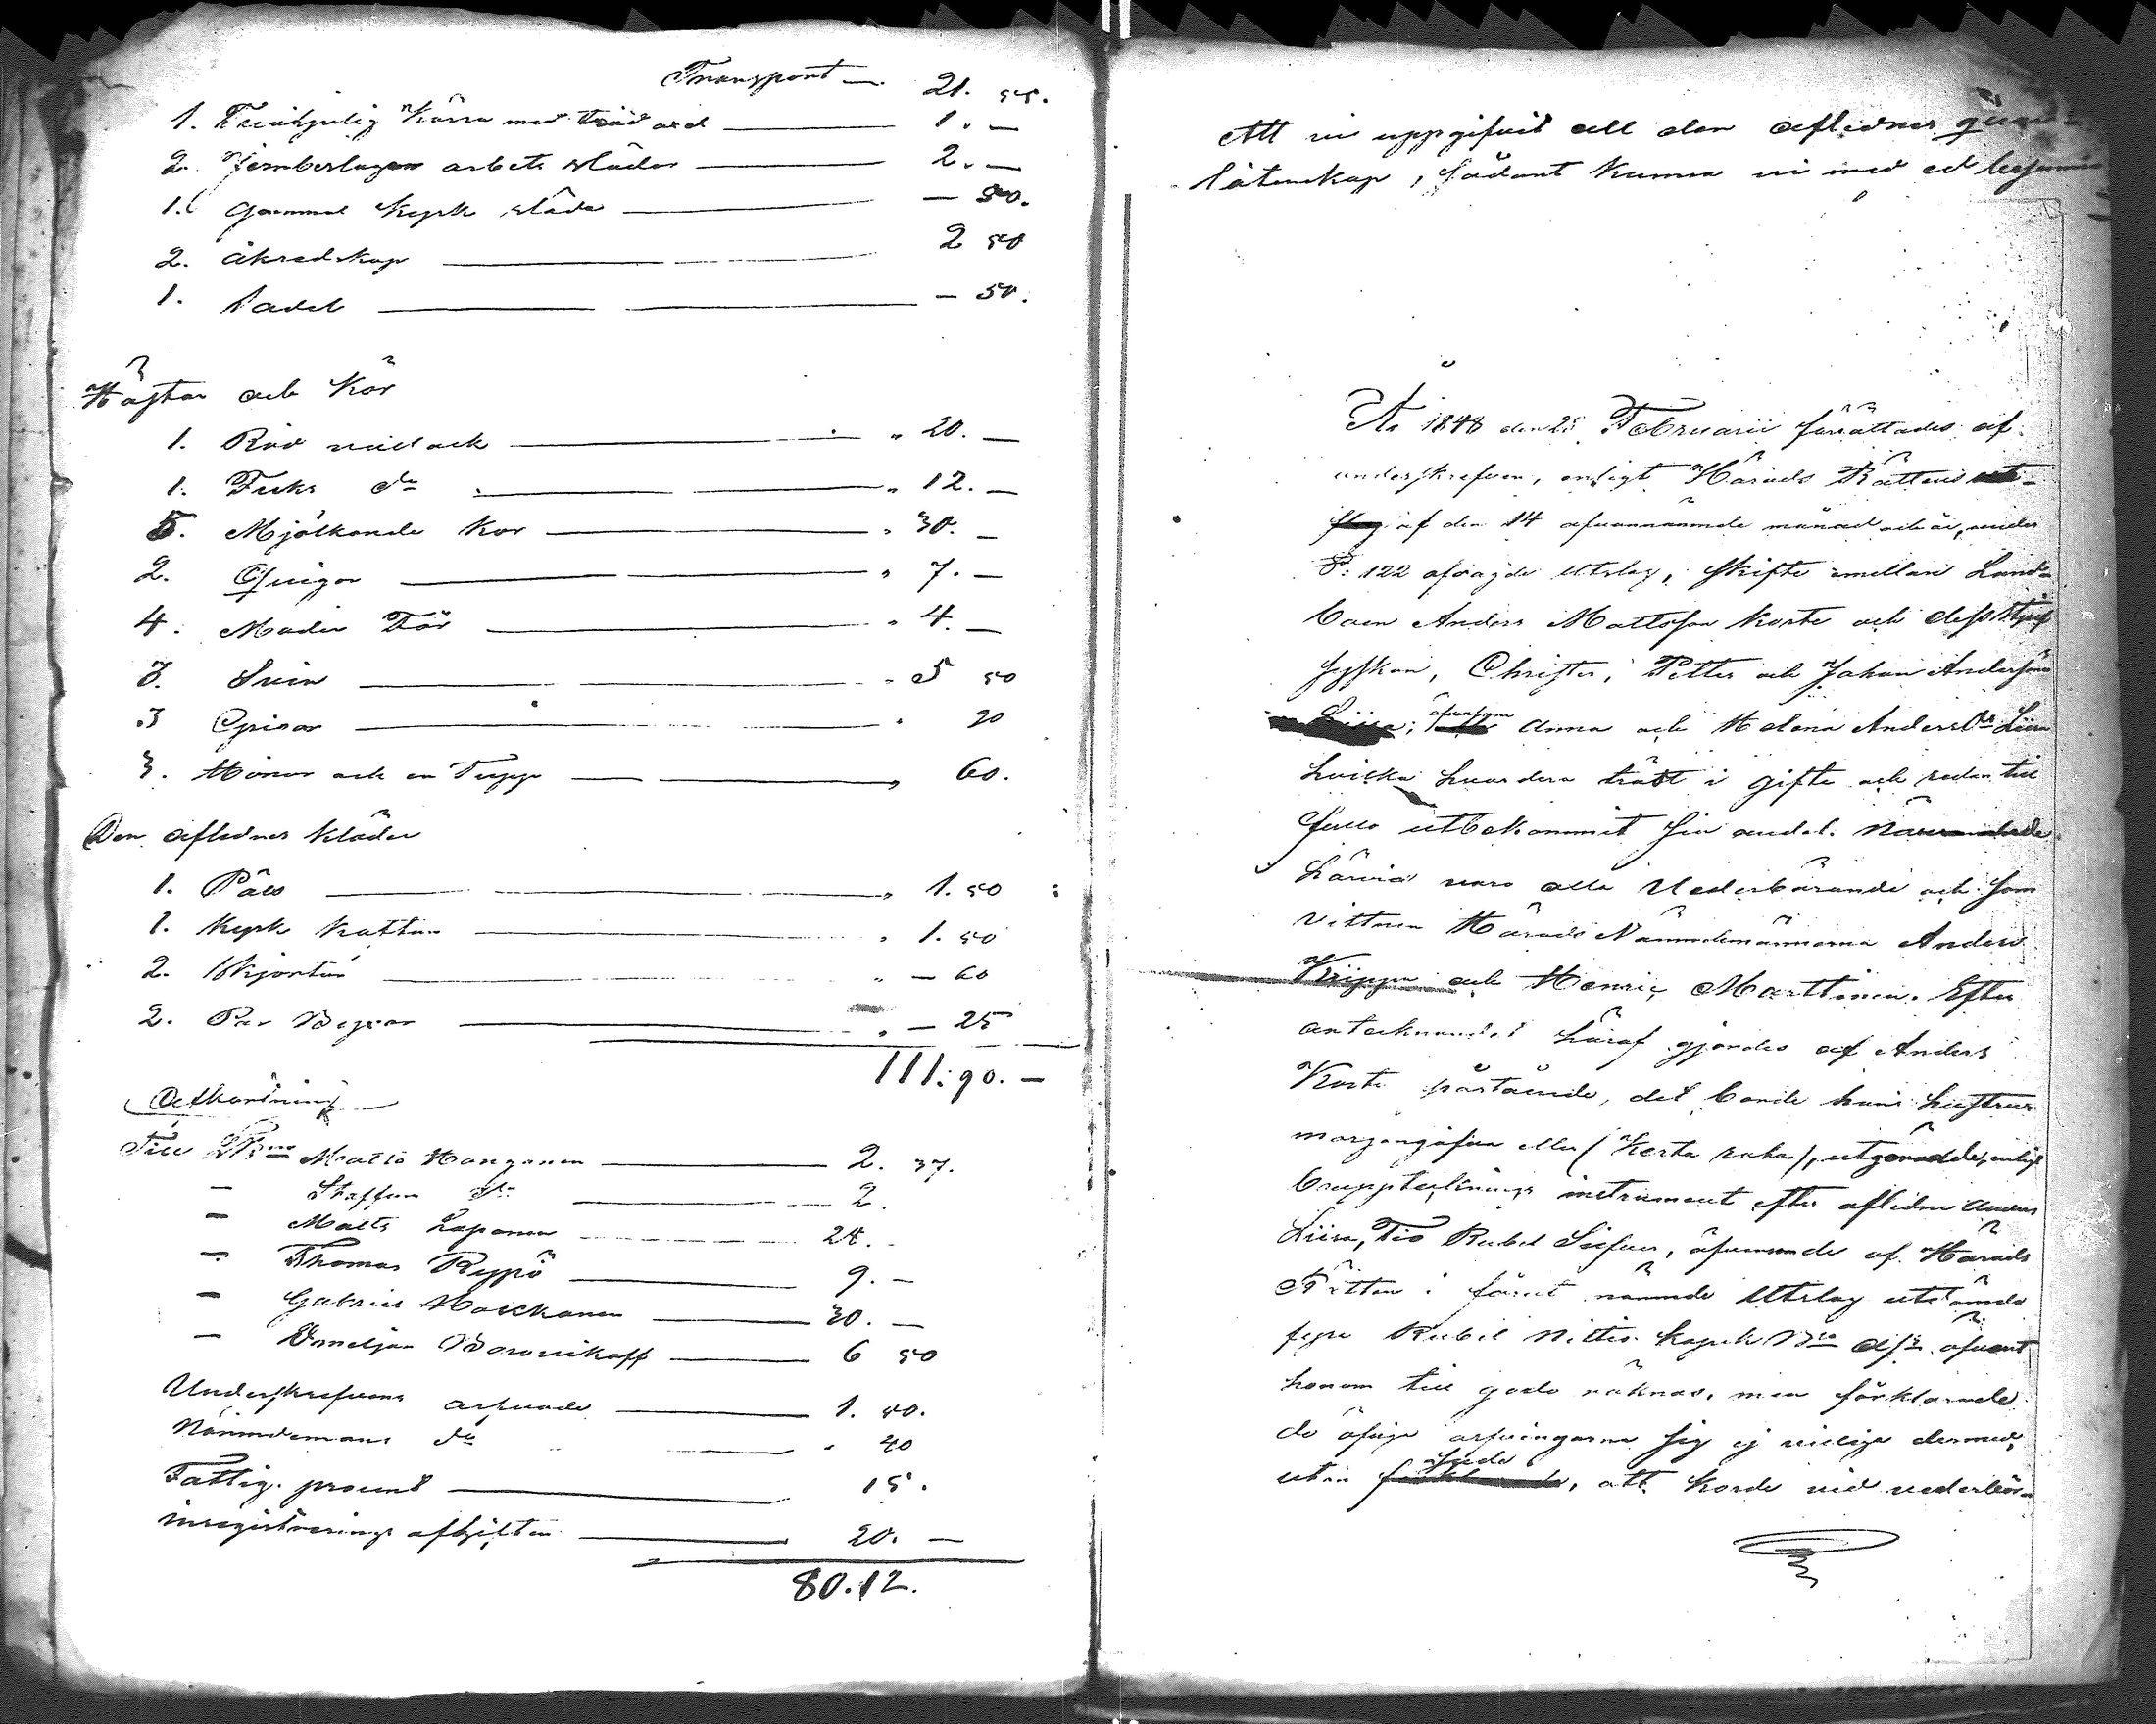 Transport — 21. 55.
1. Tvåhjulig Kärra med träd axel — 1. —
2. Jernbeslagen arbets slädar — 2. —
1. Gammal Kyrk släde — — 50.
2. åkredskap — 2 50
1. Sadel — — 50.
Hästar och Kor
1. Röd vallack — " 20. —
1. Fuks do — " 12. —
5. Mjölkande Kor — " 30. —
2. Qvigor — " 7. —
4. Moder Får — " 4. —
3. Svin — " 5 50
3 Grisar — " 20
3. Hönor och en Tupp — " 60.
Den aflednes kläder
1. Päls — " 1. 50
1. Kyrk Kaftan — " 1. 50
2. Skjortor — " — 60
2. Par Byxor — " — 25
111. 90. —
Afkortning
Till Matts Manganen — 2. 37.
— Staffan do — 2.
— Matts Laponen — 28.
— Thomas Reppo — 9. —
— Gabriel Moskanen — 30. —
— Emeljan Borovikoff — 6 50
Underskrefvens arfvode — 1. 50.
Nämndemans do — " 40
Fattig. procent — 15.
inregistrerings afgiften — 20. —
80. 12.
Att vi uppgifvit all den aflednes
låtenskap, sådant kunna vi med ed
År 1848 den 25 Februarii förrättades af
underskrefven, enligt Härads Rättens
af den 14 ofvannämnde månad och år, under
§: 122 afsagde Utslag, skifte emellan Land-
boen Anders Mattsson Korte och dess Styf
syskon, Christer, Petter och Johan Anderssöner
Liira; äfvensom Anna och Helena Andersdr Liira
hvilka hvardera trädt i gifte och redan till
fullo utbekommit sin andel.
härvid voro alla Vederbörande och som
vittnen Härads Nämndemännerna Anders
Krippu och Henric Marttinen. Efter
antecknandet häraf gjordes af Anders
Korte påstående, det borde hans hustrus
morgongåfva eller (Korta raha), enligt
instrument efter aflidne Anders
Liira, Tio Rubel Silfver, äfvensom de af Härads
Rätten i förut nämnde Utslag utdömde
fyra Rubel
honom till godo räknas, men förklarade
de öfrige arfvingarne sig ej villige dermed,
utan, att Korde vid vederbör-